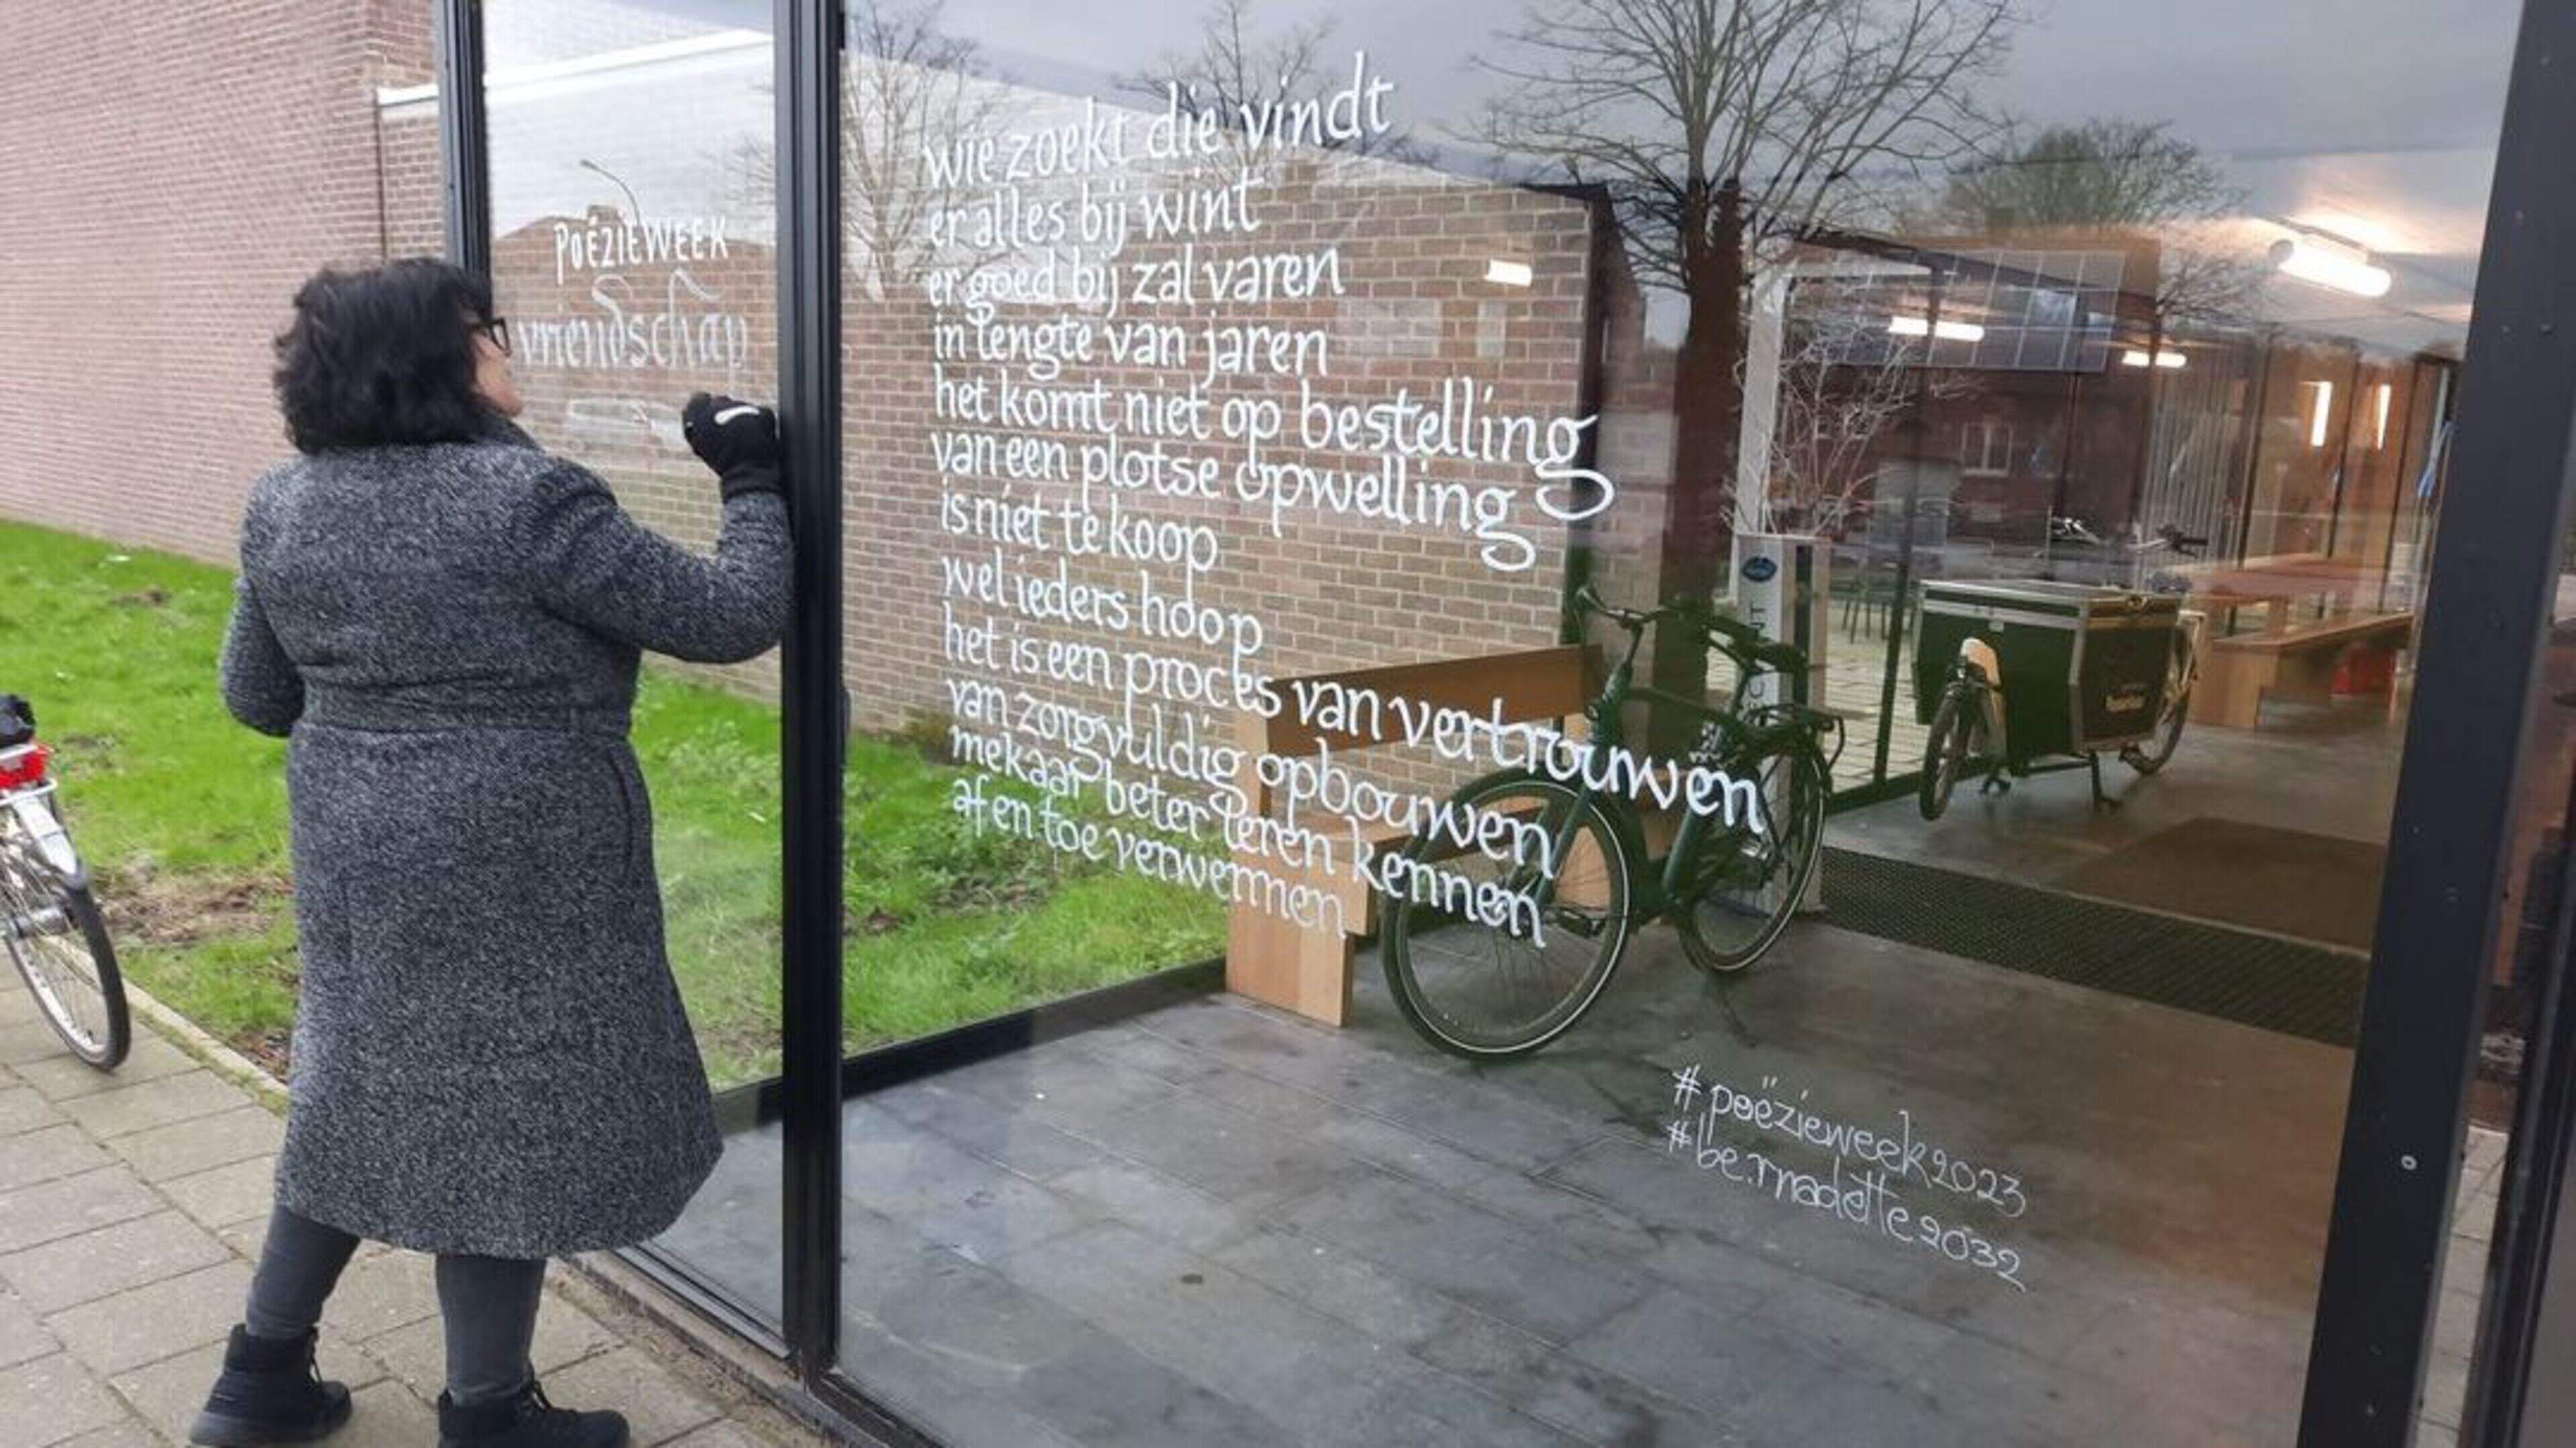 poëzieweek
vriendschap
wie zoekt die vindt
er alles bij wint
er goed bij zal varen
in lengte van jaren
het komt niet op bestelling
van een plotse opwelling
is niet te koop
wel ieders hoop
het is een proces van vertrouwen
van zorgvuldig opbouwen
mekaar beter leren kennen
af en toe verwennen
#poëzieweek2023
#be.rnadette2032